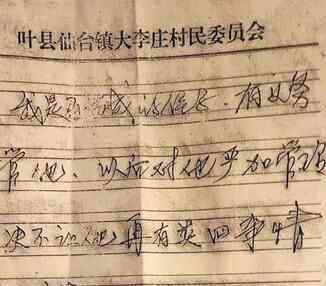 叶县仙台镇大李庄村民委员会
我是 的 长.有义务
管他、以后对他严加管
决不让他再有 事情